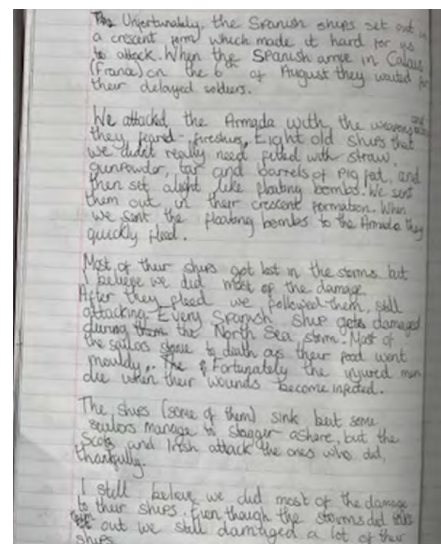 Unfortunately, the Spanish ships set out in
a crescent form which made it hard for us
to attack. When the Spanish arrive in Calais
(France) on the 6th of August they waited for
their delayed soldiers.
We attacked the Armada with the weapons
they feared - fireships. Eight old ships that
we didnt really need filled with straw,
gunpowder, tar and barrels of pig fat, and
then set alight like floating bombs. We sent
them out in their crescent formation. When
we sent the floating bombs to the Armada they
quickly fleed.
Most of their ships got lost in the storms but
I believe we did most of the damage
After they fleed we followed them, still
attacking. Every Spanish ship gets damaged
during the North Sea storm. Most of
the sailors starve to death as their food went
mouldy. Fortunately the injured men
die when their wounds become infected.
The ships (some of them) sink but some
sailors manage to stagger ashore, but the
Scots and Irish attack the ones who did,
thankfully.
I still believe we did most of the damage
to their ships. Even though the storms did
out we still damaged a lot of their
ships